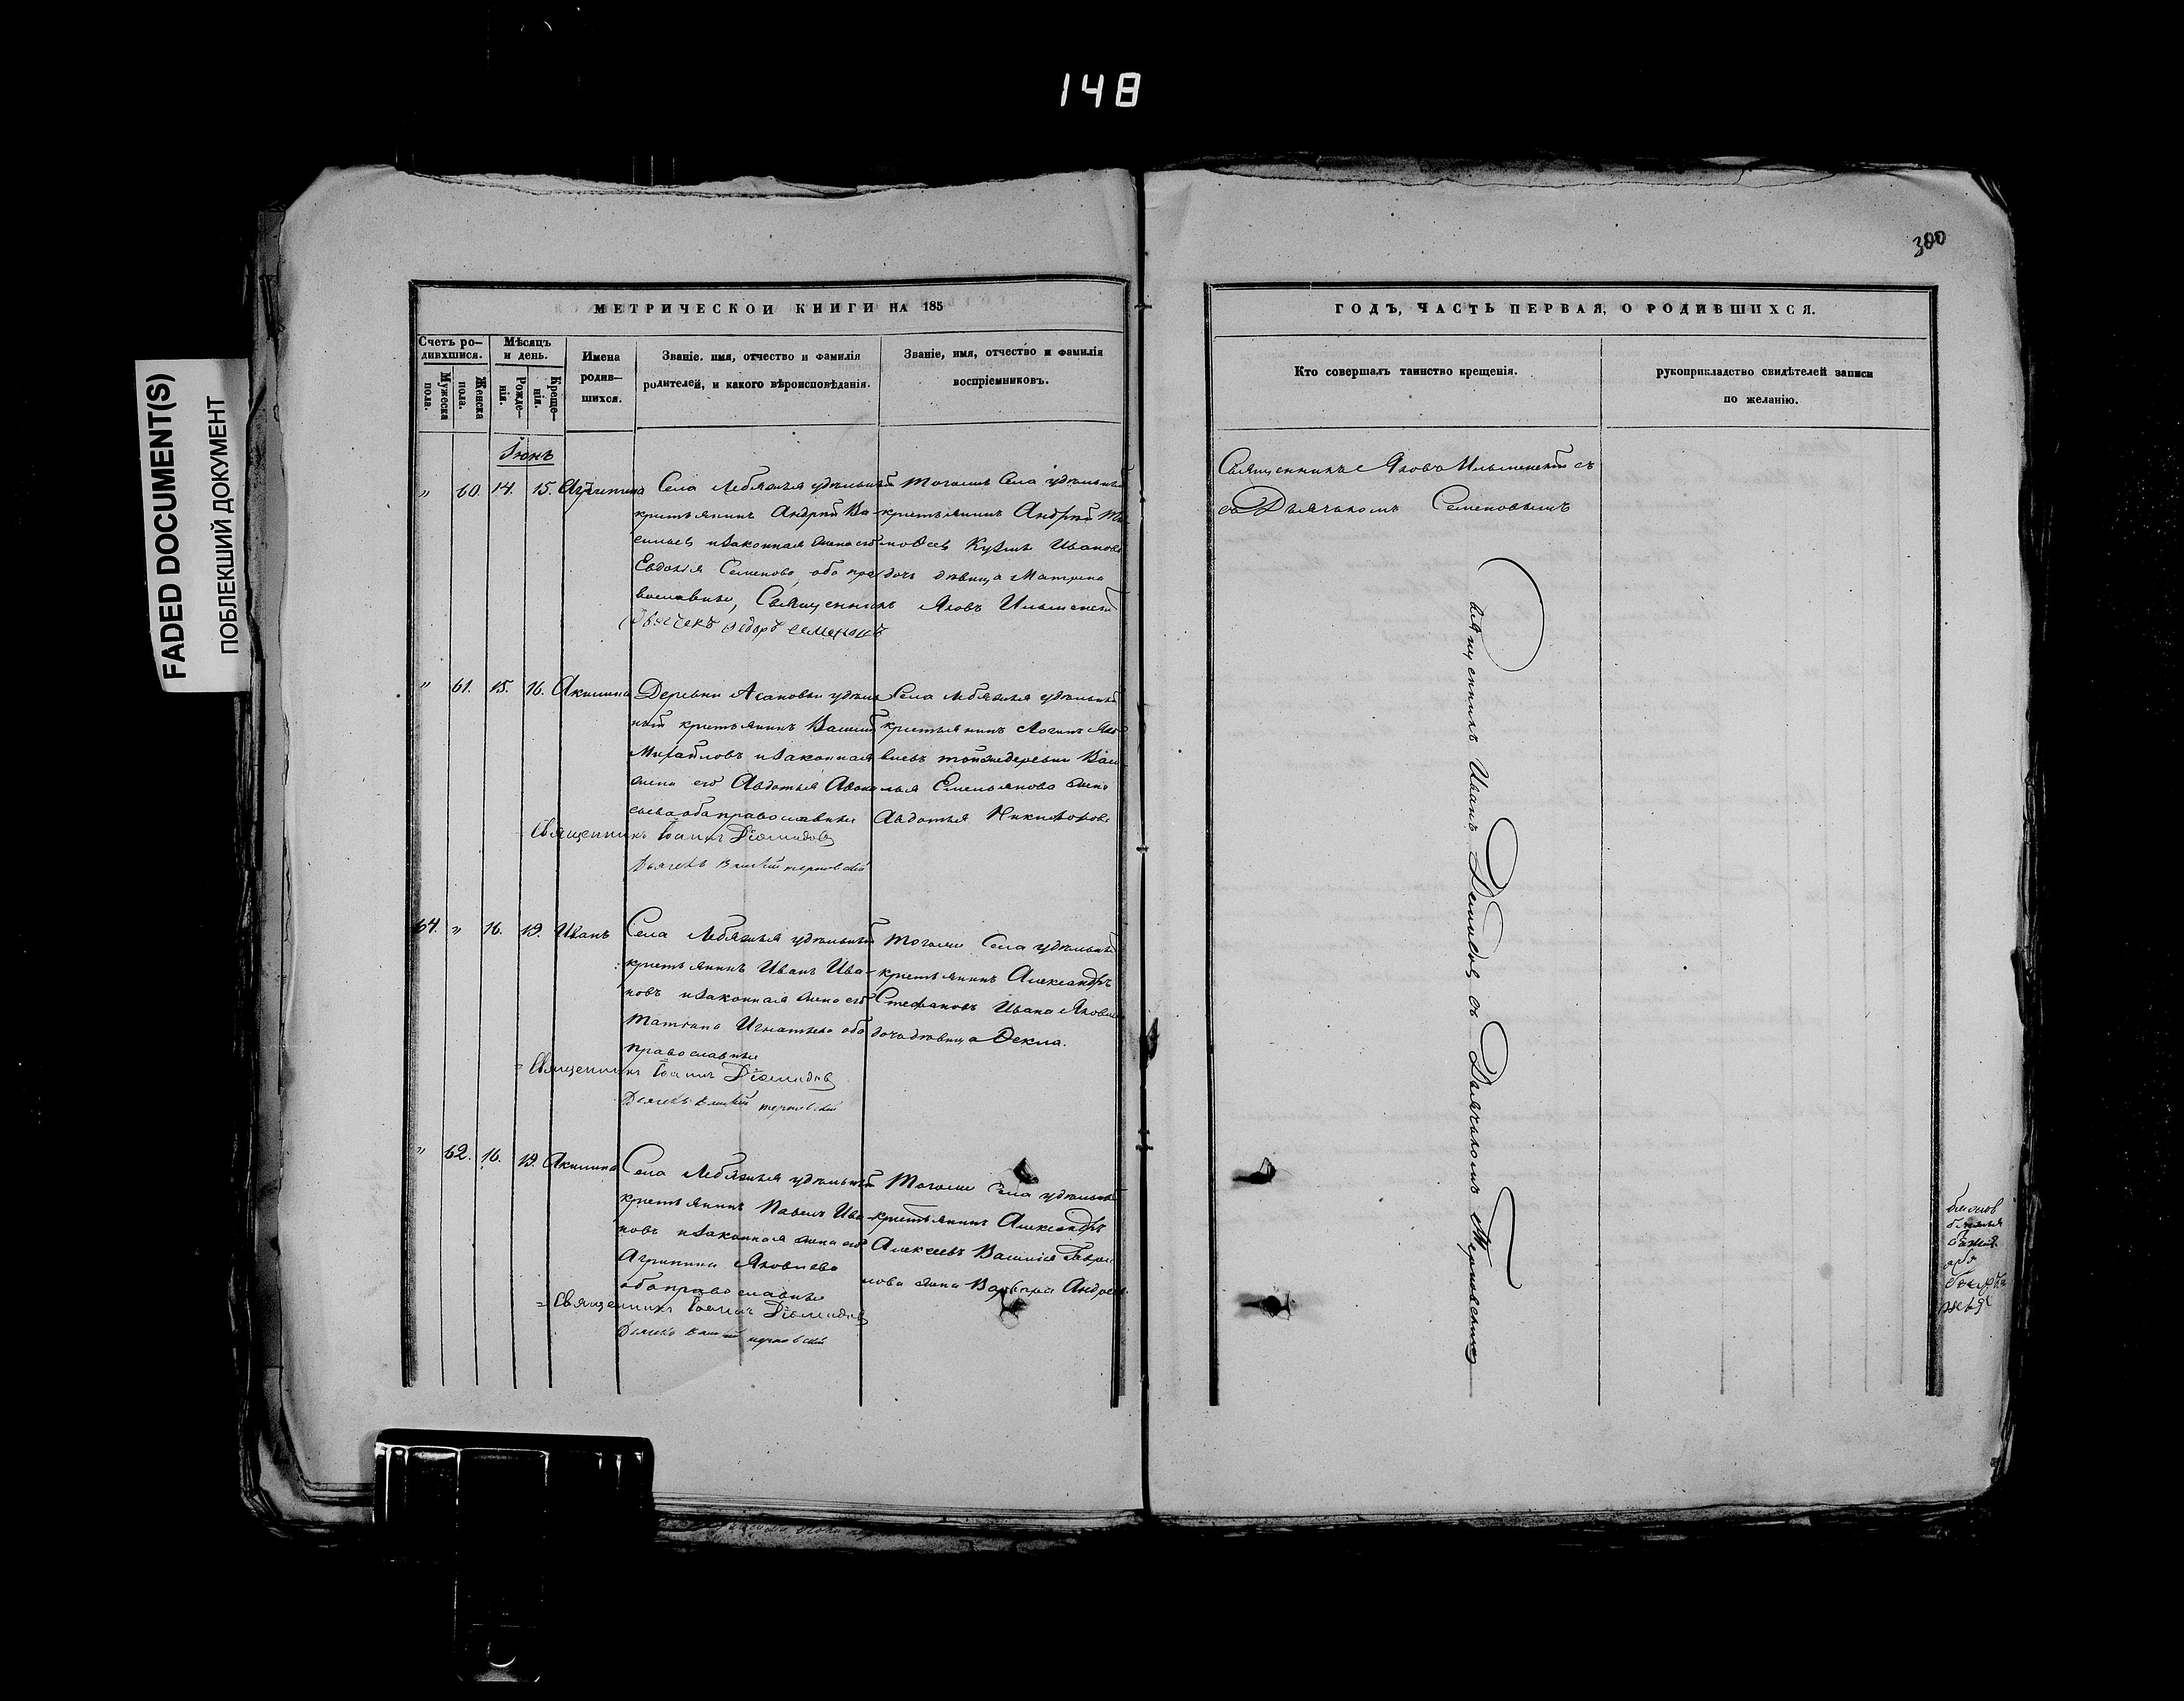 148
FADED DOCUMENT(S)
ПОБЛЕКШИЙ ДОКУМЕНТ
300
МЕТРИЧЕСКОЙ КНИГИ НА 185
Счетъ ро-
дивхшися.
Мужеска
пола.
Женска
пола.
Мѣсяцъ
и день.
Рожде-
нія.
Креще-
нія.
Имена
родив-
шихся.
Званіе. имя, отчество и фамилія
родителей, и какого вѣроисповѣданія.
Званіе, имя, отчество и фамилія
воспріемниковъ.
Іюнь
" 60. 14. 15. Агрипина
Села Лебяжья удѣльный
крестьянинъ Андрей Ва-
сильевъ и законная жена его
Евдокія Семенова, оба пра
вославные, Священникъ Яковъ
Дьячекъ Ѳедоръ Семеновъ
Тогоже Села удѣльный
крестьянинъ Андрей Ти
моѳеевъ Кузьмы Иванова
дочь дѣвица Матрена
" 61. 15. 16. Акилина
Деревни Асановки удѣль
ный крестьянинъ Василій
Михайловъ и законная
жена его Авдотья
оба православные
Священникъ Іоаннъ Діомидовъ
Дьячекъ Василій Терновскій
Села Лебяжья удѣльный
крестьянинъ Логинъ Яко
влевъ тойже деревни Васи
лья Емельянова жена
Авдотья Никифорова
64. " 16. 19. Иванъ
Села Лебяжья удѣльный
крестьянинъ Иванъ Ива-
новъ и законная жена его
Татіана Игнатьева оба
православные
Священникъ Іоаннъ Діомидовъ
Дьячекъ Василій Терновскій
Тогоже Села удѣльный
крестьянинъ Александръ
Стефановъ Ивана Яковлева
дочь дѣвица Ѳекла.
" 62. 16. 19. Акилина
Села Лебяжья удѣльный
крестьянинъ Павелъ Ива
новъ и законная жена его
Агрипина Яковлева
оба православные
Священникъ Іоаннъ Діомидовъ
Дьячекъ Василій Терновскій
Тогоже Села удѣльный
крестьянинъ Александръ
Алексеевъ Василія Гаври
лова жена Варвара Андреева
ГОДЪ, ЧАСТЬ ПЕРВАЯ, О РОДИВШИХСЯ.
Кто совершалъ таинство крещенія.
рукоприкладство свидѣтелей записи
по желанію.
Священникъ Яковъ съ
съ Дьячькомъ Семеновымъ
Священникъ Иванъ Демидовъ съ Дьячькомъ Терновскимъ